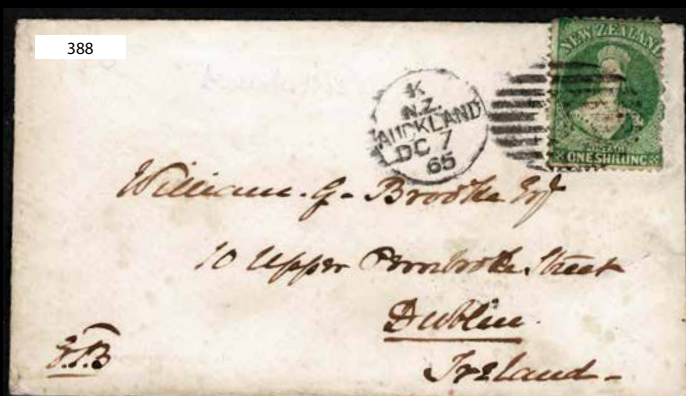 388
NEW ZEALAND
POSTAGE
ONE SHILLING
K
N.Z.
AUCKLAND
DC 7
65
William. G. Brooke Esq
10 Upper Pembroke Street
Dublin.
Ireland-